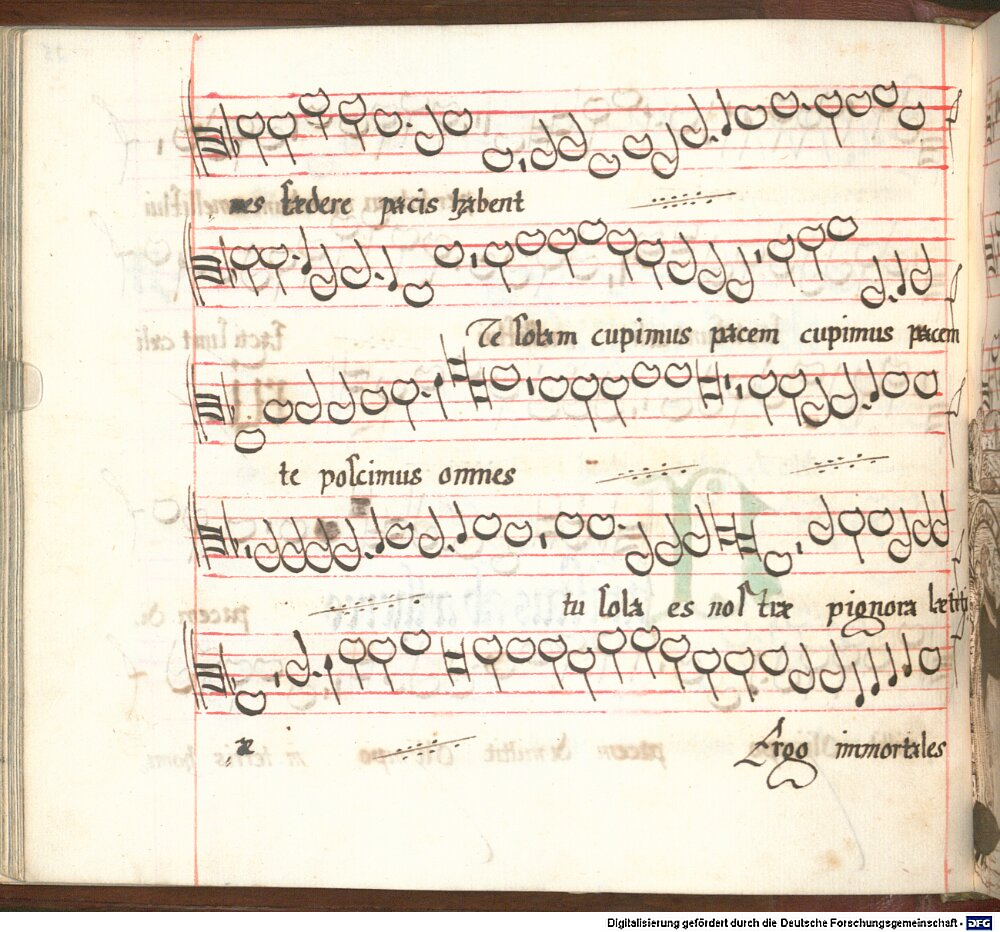 nes fædere pacis habent
Te solam cupimus pacem cupimus pacem
te poscimus omnes
tu sola es nostræ pignora lætiti
æ
Ergo immortales
Digitalisierung gefördert durch die Deutsche Forschungsgemeinschaft - DFG